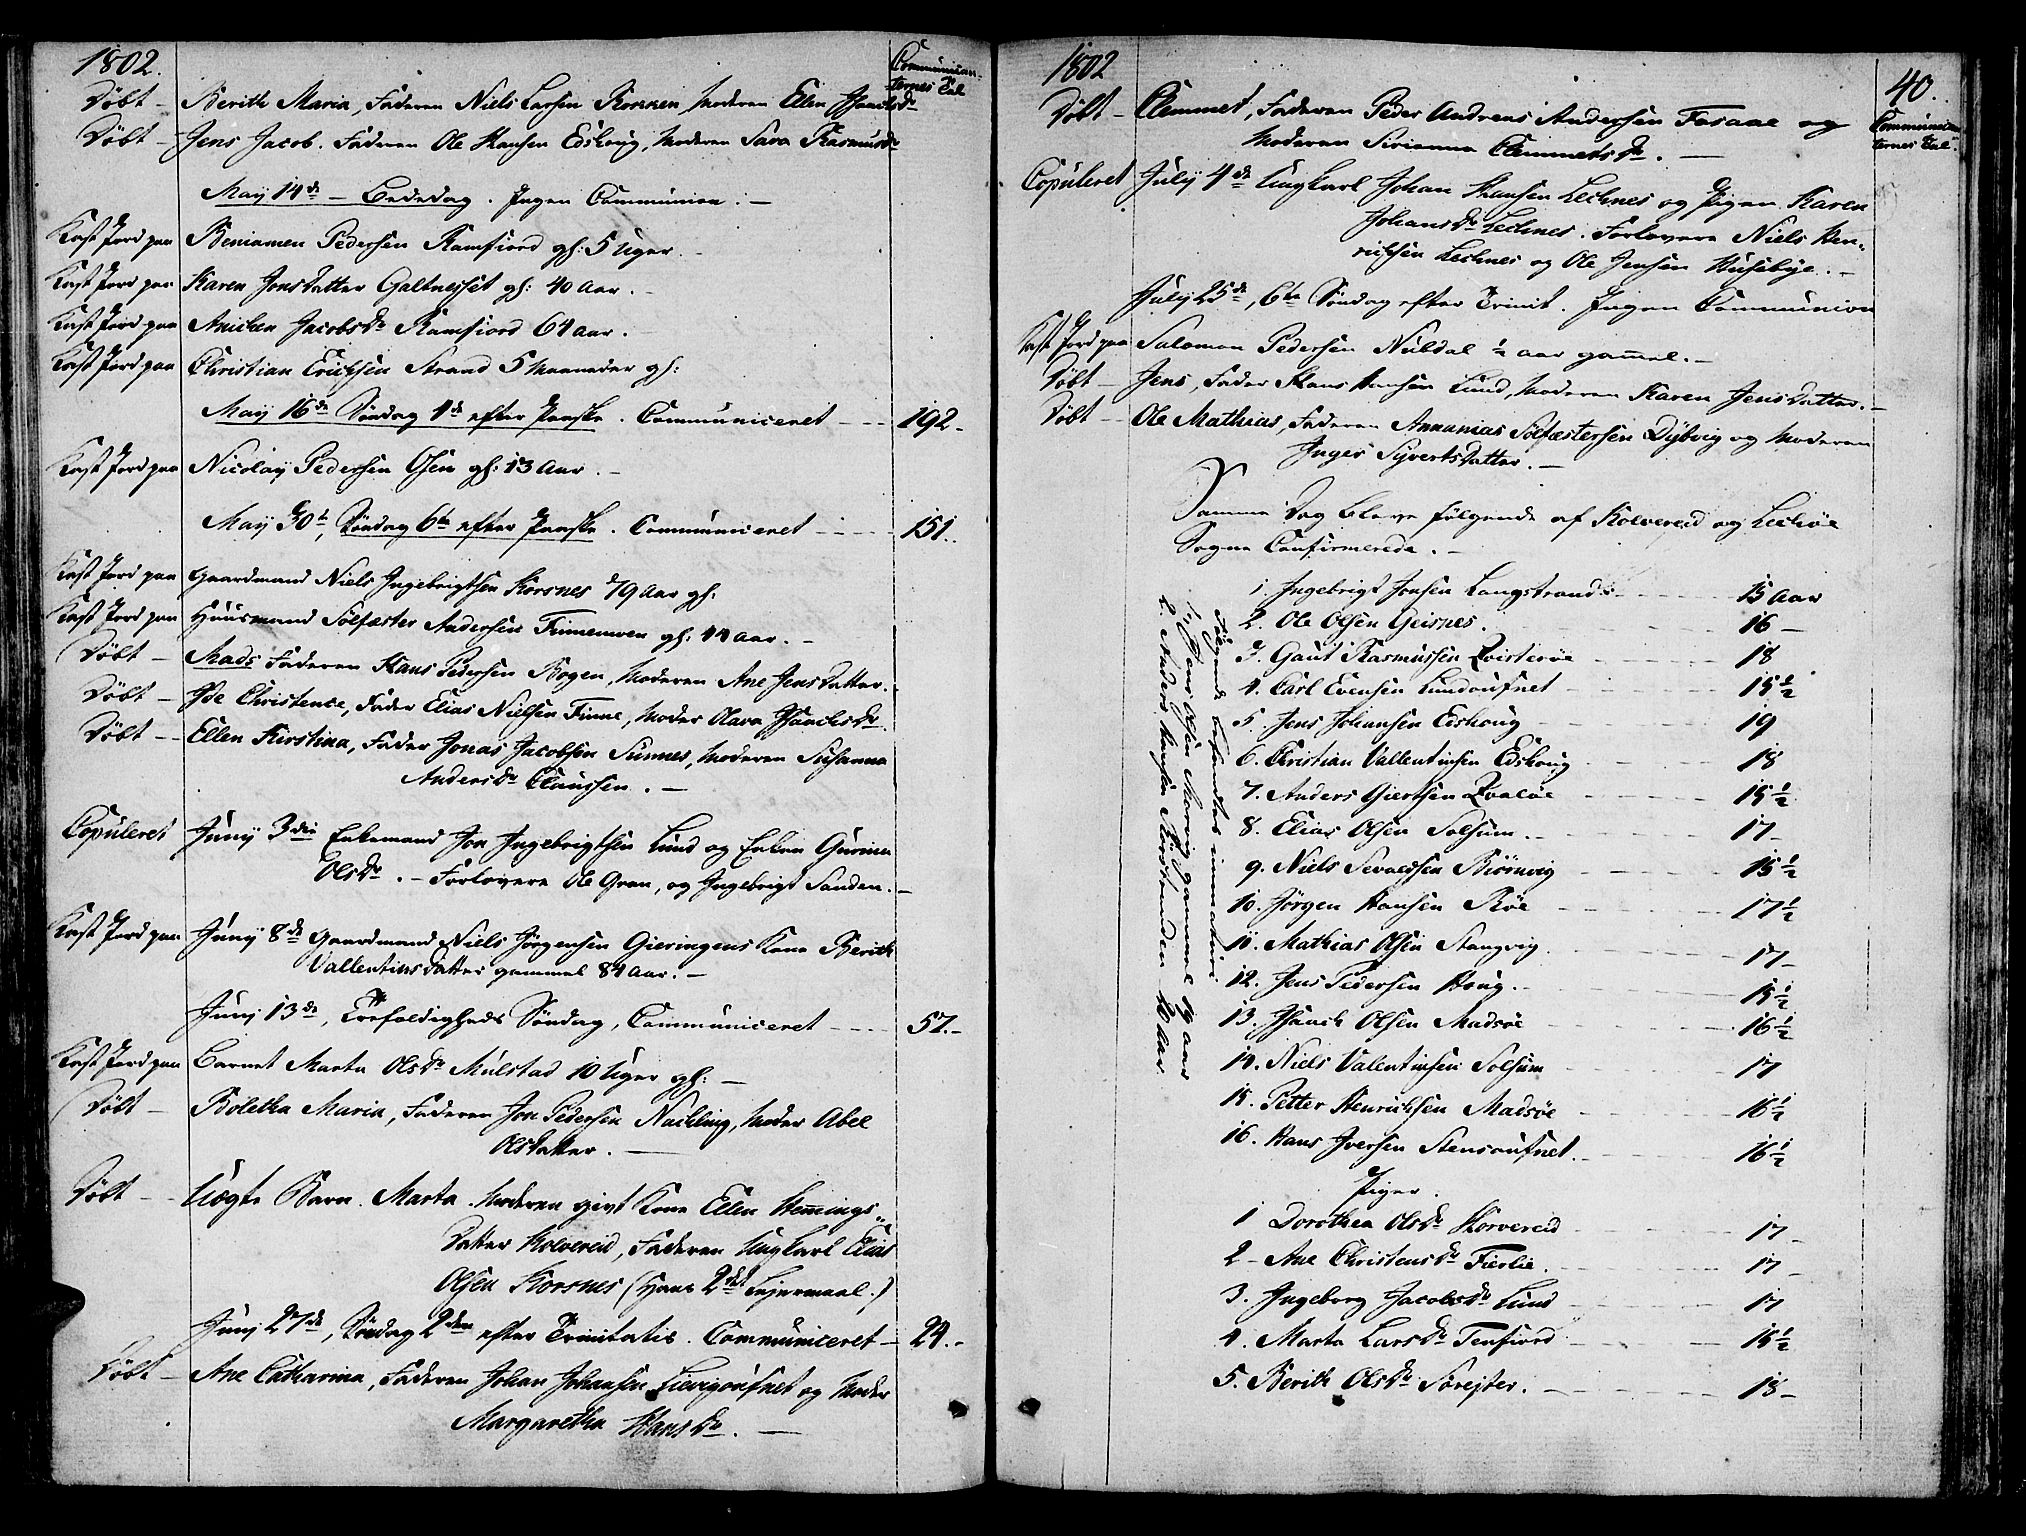 1802.
Communican-
ternes Tal
Döbt – Berith Maria, Faderen Niels Larsen Kornen, Moderen Ellen Isachsdr
Döbt – Jens Jacob. Faderen Ole Hansen Edshoug, Moderen Sara Rasmusdr
May 14de – Bededag. Ingen Communion. –
Kast Jord paa Beniamen Pedersen Ramfiord gl: 5 Uger. –
Kast Jord paa Karen Jonsdatter Galtnesset gl: 40 Aar. –
Kast Jord paa Anichen Jacobsdr Ramfiord 64 aar. –
Kast Jord paa Christian Erichsen Strand 5 Maaneder gl:
May 16de Söndag 4de efter Paaske. Communiceret – – – 192. –
Kast Jord paa Nicolay Pedersen Osen gl: 13 Aar. –
May 30te, Söndag 6te efter Paaske. Communiceret – – – 151. –
Kast Jord paa Gaardmand Niels Ingebrigtsen Korsnes 79 aar gl.
Kast Jord paa Huusmand Sölfæster Andersen Finnemoen gl: 44 aar. –
Döbt – Mads Faderen Hans Pedersen Bogen, Moderen Ane Jensdatter.
Döbt – Ide Christence, Fader Elias Nielsen Finne, Moder Olava Isachsdr.
Döbt – Ellen Kirstina, Fader Jonas Jacobsen Sünnes, Moderen Susanna
Andersdr Claussen. –
Copuleret Juny 3die Enkemand Jon Ingebrigtsen Lund og Enken Gurina
Olsdr. – Forlovere Ole Gran, og Ingebrigt Sanden. –
Kast Jord paa Juny 8de Gaardmand Niels Jörgensen Gieringens Kone Berith
Vallentinsdatter gammel 84 Aar. –
Juny 13de, Trefoldigheds Söndag, Communiceret – – – 57. –
Kast Jord paa Barnet Marta Olsdr Mulstad 10 Uger gl: –
Döbt – Boletha Maria, Faderen Jon Pedersen Nachling, Moder Abel
Olsdatter. –
Döbt – Uægte Barn. Marta. Moderen givt Kone Ellen Hemings-
datter Kolvereid, Faderen Ungkarl Elias
Olsen Korsnes (hans 2det Leiermaal.)
Juny 27de, Söndag 2den efter Trinitatis. Communiceret – 24. –
Döbt – Ane Catharina, Faderen Johan Johansen Lievigoufnet og Moder
Margaretha Hansdr. –
1802
40.
Communican-
ternes Tal.
Döbt – Clemmet, Faderen Peder Andreas Andersen Fosaae og
Moderen Sirianna Clemmetsdr. –
Copuleret July 4de Ungkarl Johan Hansen Lechnes og Pigen Karen
Johansdr Lechnes. Forlovere Niels Hen-
richsen Lechnes og Ole Jensen Husebye. –
July 25de, 6te Söndag efter Trinit. Ingen Communion
Kast Jord paa Salomon Pedersen Nubdal ½ aar gammel. –
Döbt – Jens, Fader Hans Hansen Lund, Moderen Karen Jensdatter. –
Döbt – Ole Mathias, Faderen Annanias Sölfæstersen Dybvig og Moderen
Inger Syvertsdatter. –
Samme Dag bleve fölgende af Kolvereid og Lechöe
Sogne Confirmerede. –
1. Ingebrigt Jonsen Langstrand – – 15 Aar
2. Ole Olsen Geisnes. 16 –
3. Gaut Rasmussen Qvisteröe – – 18
4. Carl Evensen Lundoufnet – – 15½
5. Jens Johansen Edshoug – – 19
6. Christian Vallentinsen Edshoug – – 18
7. Anders Giertsen Qvalöe – – 15½
8. Elias Olsen Solsum. – – 17 –
9. Niels Sevaldsen Biörnvig – – 15½
10. Jörgen Hansen Röe – – 17½
11. Mathias Olsen Stangvig. – – 17 –
12. Jens Pedersen Houg. – – 15½
13. Isaach Olsen Madsöe – – 16½
14. Niels Valentinsen Solsum – – 17
15. Petter Henrichsen Madsöe – – 16½
16. Hans Iversen Stensoufnet. – – 16½
Piger.
1 Dorothea Olsdr Horvereid – – 17 –
2 – Ane Christensdr Fierlie. – – 17 –
3. Ingeborg Jacobsdr Lund – – 17
4. Marta Larsdr Tenfiord – – 15½
5. Berith Olsdr Sörejter. – – 18 –
Fölgende befandtes immaturi
1. Jens Olsen Morvig gammel 19 aar
2. Anders Hansen 20 Aar